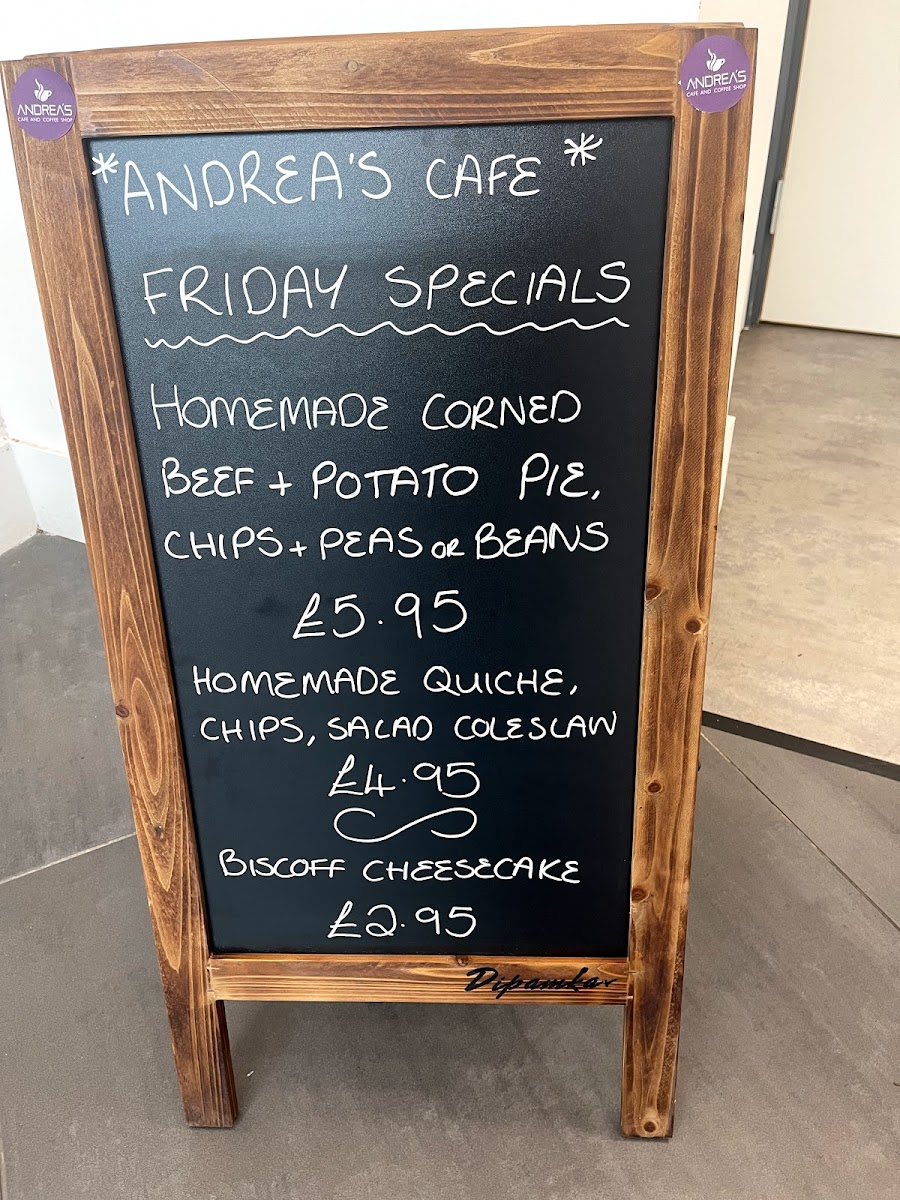 ANDREA'S
CAFE AND COFFEE SHOP
ANDREA'S
CAFE AND COFFEE SHOP
*ANDREA'S CAFE *
FRIDAY SPECIALS
HOMEMADE CORNED
BEEF + POTATO PIE,
CHIPS + PEAS OR BEANS
£5.95
HOMEMADE QUICHE,
CHIPS, SALAD COLESLAW
£4.95
BISCOFF CHEESECAKE
£2.95
Dipamkar